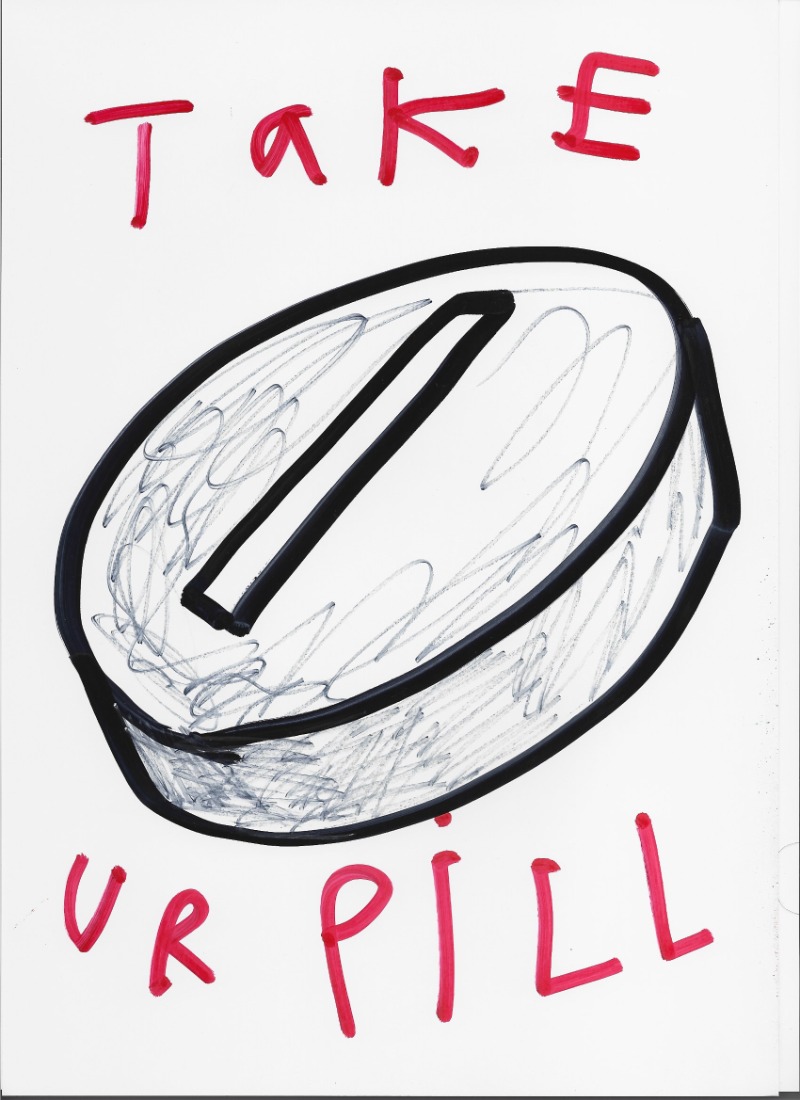 TaKE
UR PiLL